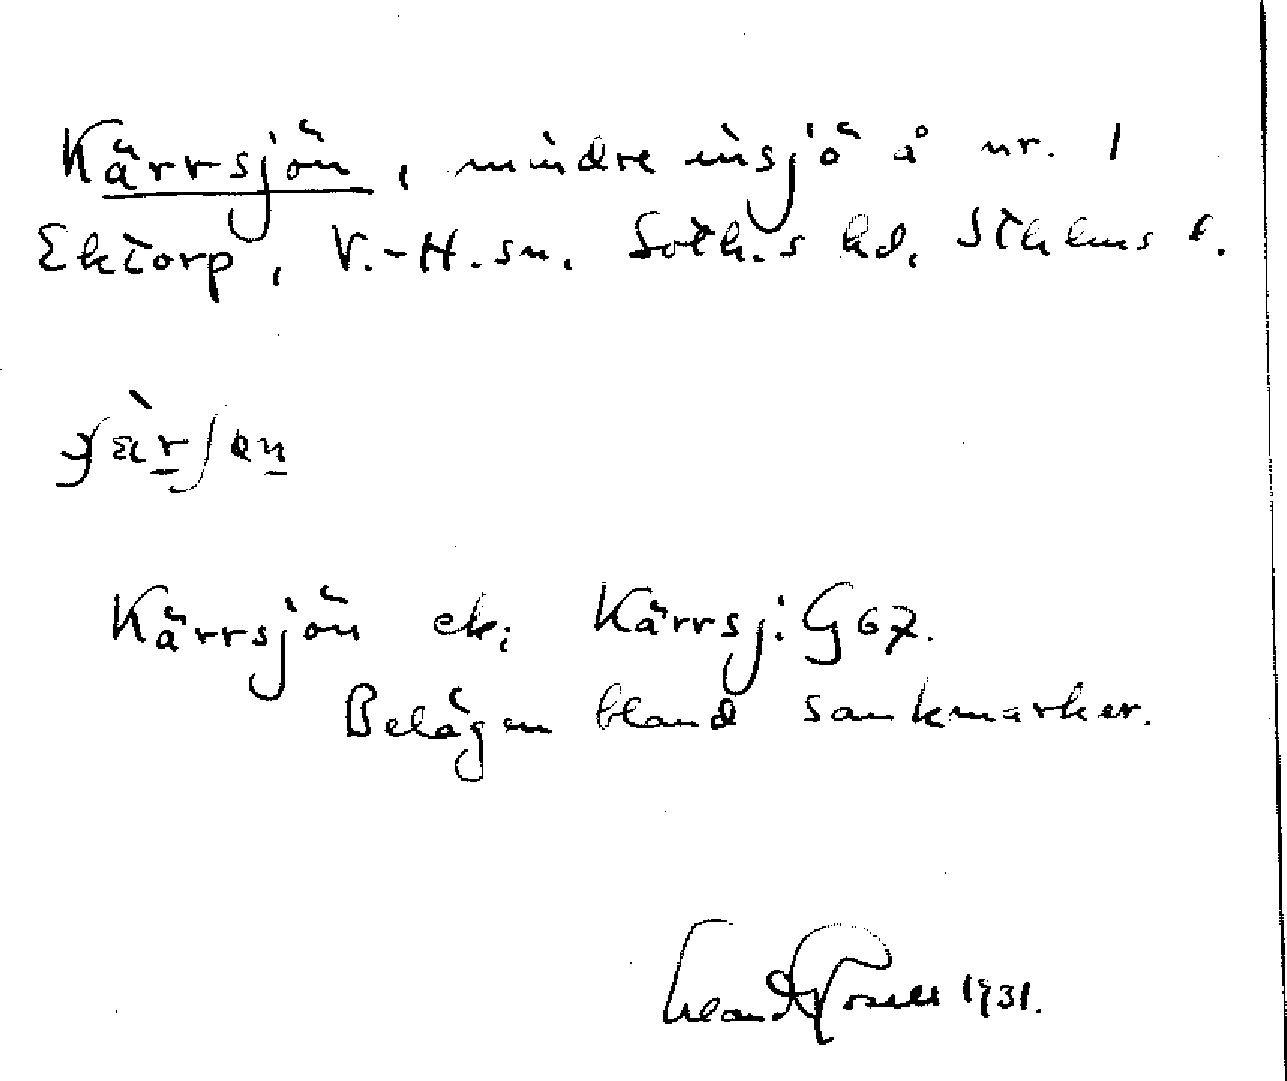 Kärrsjön, mindre insjö å nr. 1
Ektorp, V.-H. sn. Soth.s hd. Sthlms l.
Kärrsjön ek; Kärrsj: G 67.
Belägen bland sankmarker.
1931.